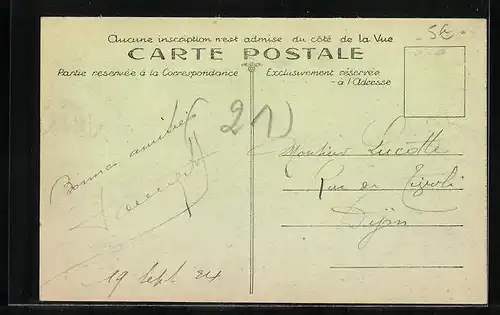 Aucune inscription n'est admise du côté de la Vue
CARTE POSTALE
Partie reservée à la Correspondance
Exclusivement réservée
à l'Adresse
5€
21)
Bonnes amitiés
Monsieur Lucotte
Rue de Tivoli
Dijon
19 Sept 24